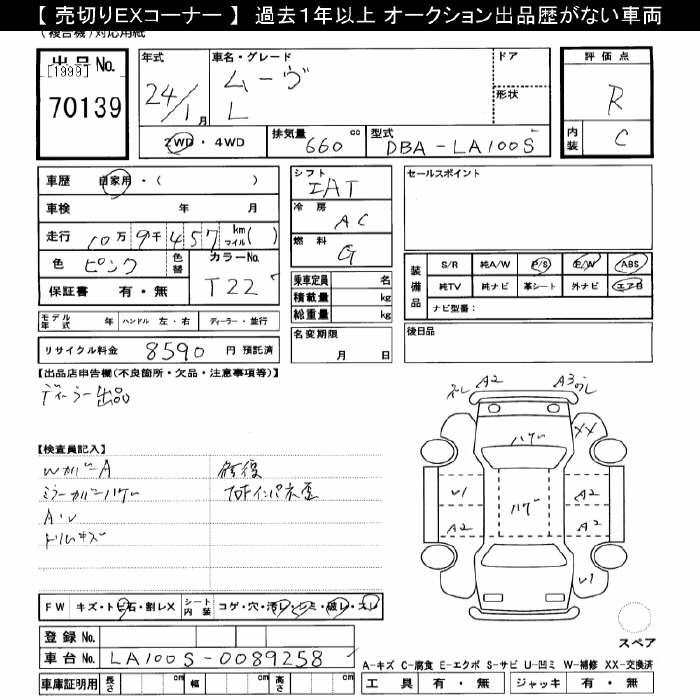 【 売切りEXコーナー 】 過去1年以上 オークション出品歴がない車両
(複合機)対応用紙
出品No.
[1999]
70139
年式
24/1月
車名・グレード
ムーヴ
L
ドア
形状
評価点
R
内装 C
2WD・4WD
排気量 660 cc
型式 DBA-LA100S
車歴 自家用・( )
車検 年 月
走行 10万9千457 km マイル( )
色 ピンク
色替
カラーNo. T22
保証書 有・無
シフト IAT
冷房 AC
燃料 G
乗車定員 名
積載量 kg
総重量 kg
セールスポイント
装備品
S/R 純A/W P/S P/W ABS
純TV 純ナビ 革シート 外ナビ エアB
ナビ型番:
モデル年式 年 ハンドル 左・右 ディーラー・並行
リサイクル料金 8590 円 預託済
名変期限
月 日
後日品
【出品店申告欄(不良箇所・欠品・注意事項等)】
ディーラー出品
【検査員記入】
WカバーA
ミラーカバーハゲ
A・U
ドリムキズ
修復
A2
A3
ハゲ
XX
ハゲ
A2
A2
A2
FW キズ・トビ石・割レX
シート内装 コゲ・穴・汚レ・シミ・破レ・スレ
スペア
登録No.
車台No. LA100S-0089258
A-キズ C-腐食 E-エクボ S-サビ U-凹ミ W-補修 XX-交換済
車庫証明用 長さ cm 幅 cm 高さ cm
工具 有・無 ジャッキ 有・無